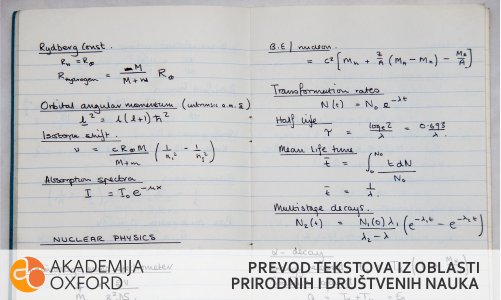 Rydberg Const.
R_H = R_∞
R_hydrogen = M / (M + m) R_∞
Orbital angular momentum (intrinsic a.m. s)
l² = l(l+1)ħ²
Isotope shift.
ν = cR_∞M / (M+m) (1/n₁² − 1/n₂²)
Absorption spectra
I = I₀e^(−μx)
NUCLEAR PHYSICS
B.E / nucleon.
= c² [M_n + Z/A (M_H − M_n) − M_a/A]
Transformation rates
N(t) = N₀e^(−λt)
Half life
τ = log_e 2 / λ = 0.693 / λ
Mean life time
t̄ = ∫₀^N₀ t dN / N₀
t̄ = 1/λ.
Multistage decays.
N₂(t) = N₁(0)λ₁ / (λ₂ − λ₁) (e^(−λ₁t) − e^(−λ₂t))
AKADEMIJA
OXFORD
PREVOD TEKSTOVA IZ OBLASTI
PRIRODNIH I DRUŠTVENIH NAUKA